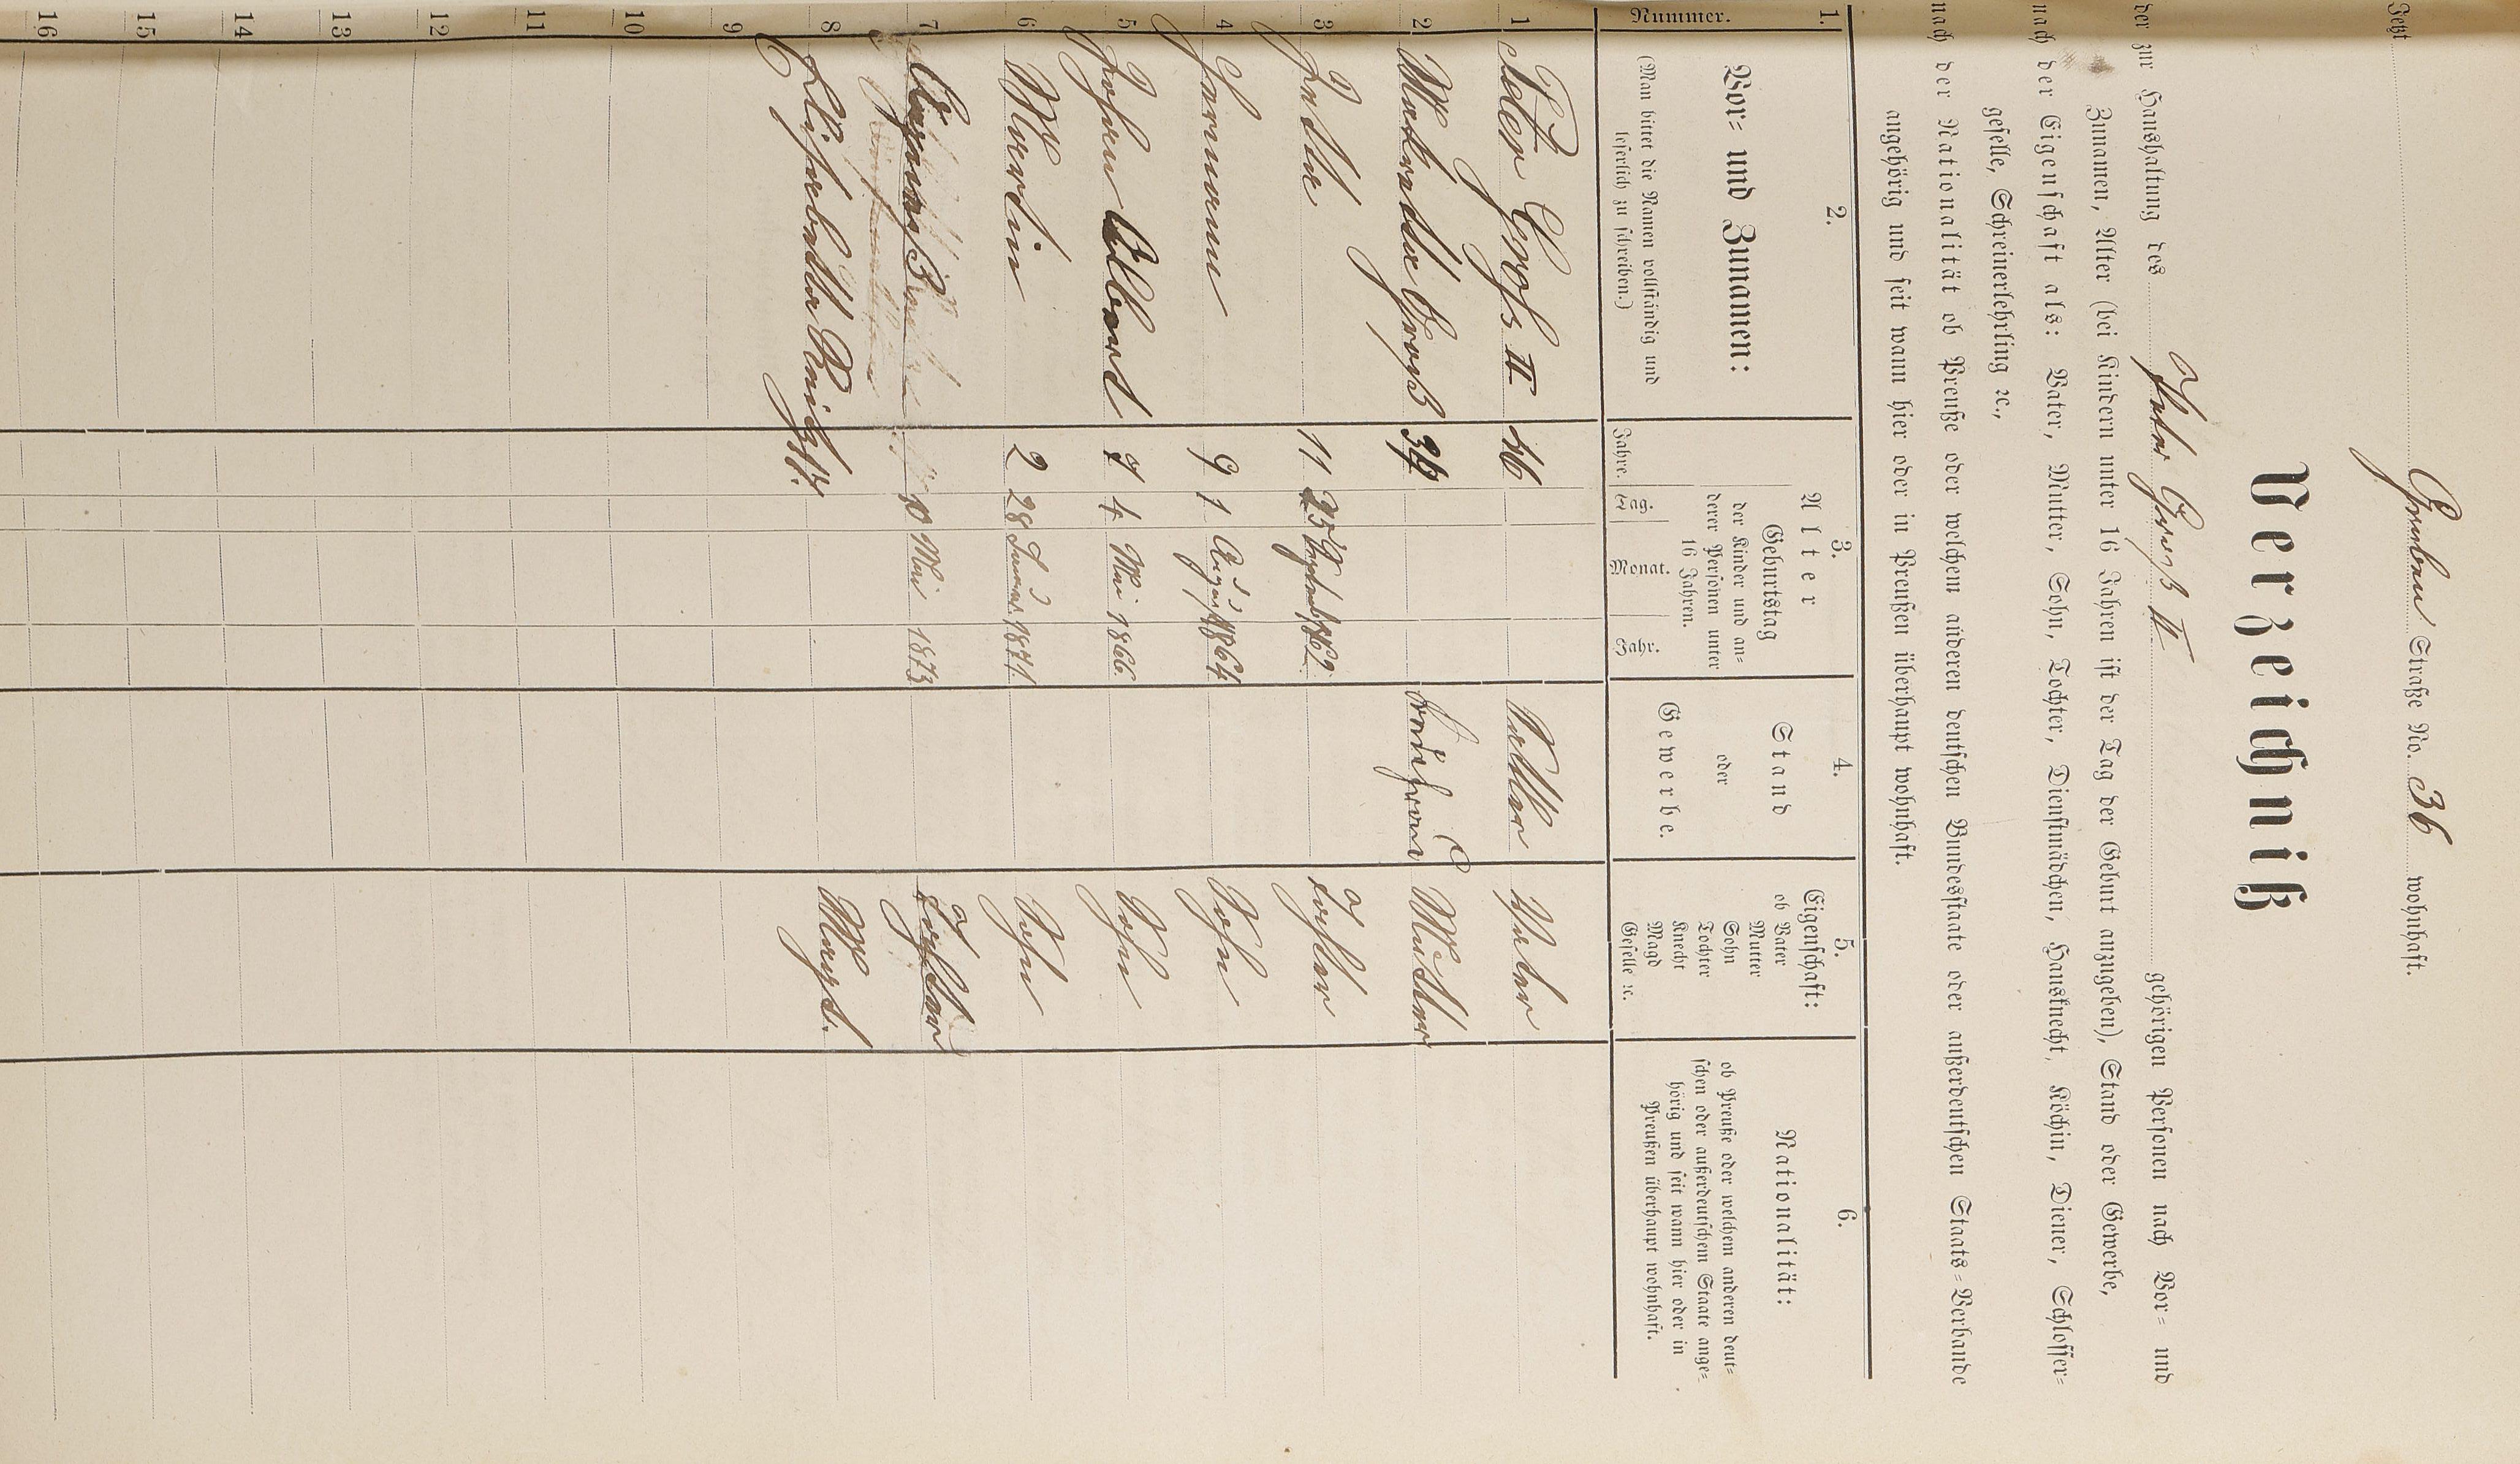 Jetzt Graben Straße No. 36 wohnhaft.
Verzeichniß
der zur Haushaltung des Peter Groß II gehörigen Personen nach Vor- und
Zunamen, Alter (bei Kindern unter 16 Jahren ist der Tag der Geburt anzugeben), Stand oder Gewerbe,
nach der Eigenschaft als: Vater, Mutter, Sohn, Tochter, Dienstmädchen, Hausknecht, Köchin, Diener, Schlosser-
geselle, Schreinerlehrling ꝛc.,
nach der Nationalität ob Preuße oder welchem anderen deutschen Bundesstaate oder außerdeutschen Staats-Verbande
angehörig und seit wann hier oder in Preußen überhaupt wohnhaft.
1. 2. 3. 4. 5. 6.
Nummer.
Vor- und Zunamen:
(Man bittet die Namen vollständig und
leserlich zu schreiben.)
Alter
Geburtstag
der Kinder und an-
derer Personen unter
16 Jahren.
Jahre. Tag. Monat. Jahr.
Stand
oder
Gewerbe.
Eigenschaft:
ob Vater
Mutter
Sohn
Tochter
Knecht
Magd
Geselle ꝛc.
Nationalität:
ob Preuße oder welchem anderen deut-
schen oder außerdeutschem Staate ange-
hörig und seit wann hier oder in
Preußen überhaupt wohnhaft.
1 Peter Groß II 46 Vater
2 Groß Mutter
3 11 25 1862 Tochter
4 Hermann 9 1 August 1864 Sohn
5 Johan Albert 7 4 Mai 1866 Sohn
6 Martin 2 28 1871 Sohn
7 10 Mai 1873 Tochter
8 Elisabetha Magd.
9
10
11
12
13
14
15
16